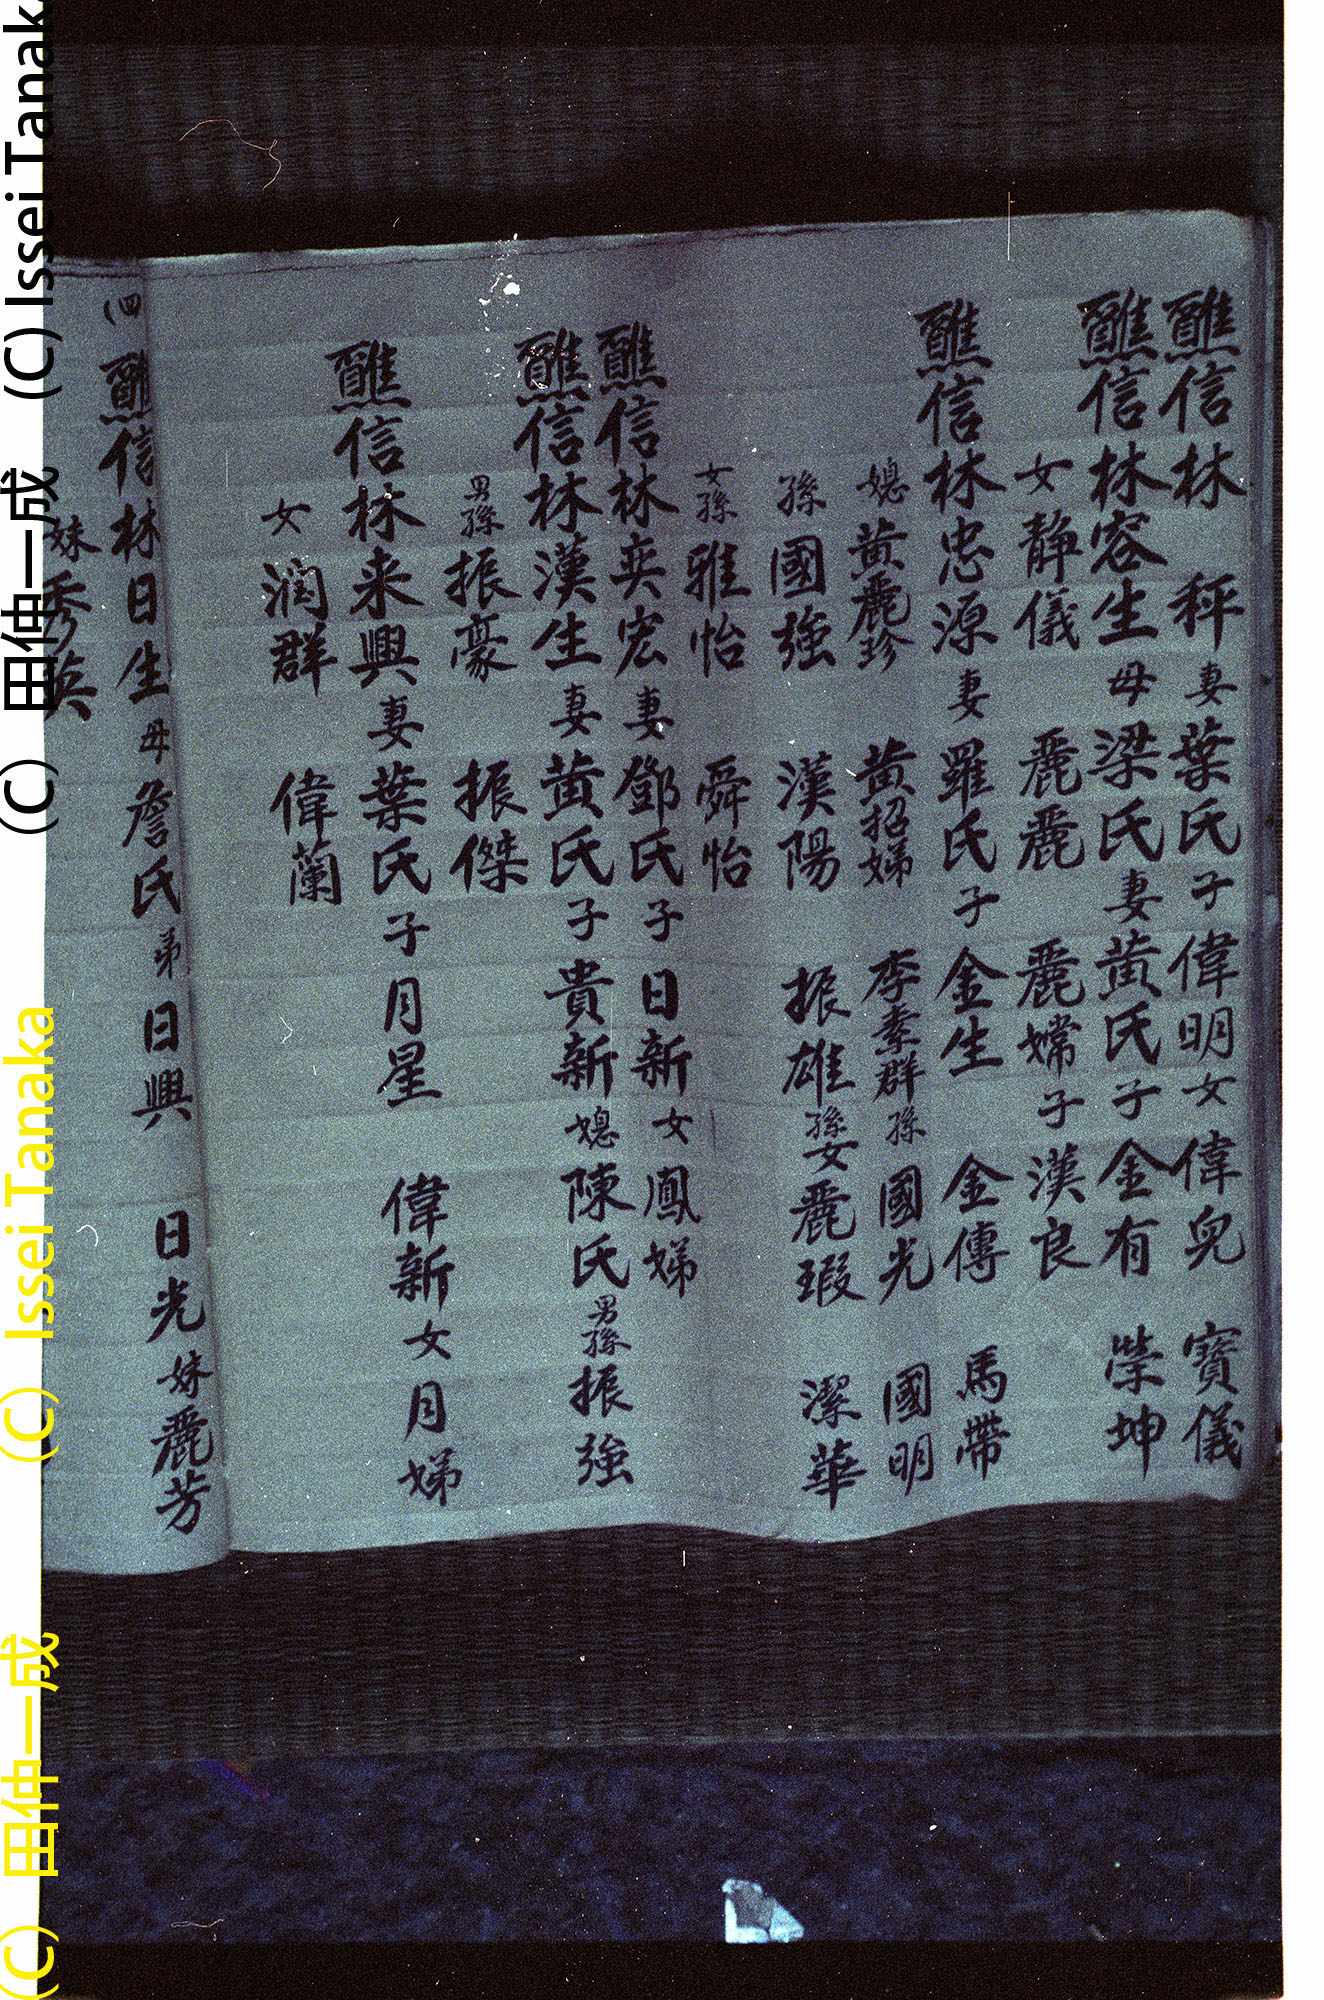 醮信林 秤妻葉氏子偉明女偉兒 寶儀
醮信林容生母梁氏妻黃氏子金有 榮坤
女靜儀 麗麗 麗嫦子漢良
醮信林忠源妻羅氏子金生 金傳 馬帶
媳黃麗珍 黃招娣 李素群孫國光 國明
孫國強 漢陽 振雄孫女麗瑕 潔華
女孫雅怡 舜怡
醮信林奕宏妻鄧氏子日新女鳳娣
醮信林漢生妻黃氏子貴新媳陳氏男孫振強
男孫振豪 振傑
醮信林来興妻葉氏子月星 偉新女月娣
女潤群 偉蘭
(四
醮信林日生母詹氏弟日興 日光妹麗芳
妹秀英
(C) 田仲一成 (C) Issei Tanaka
(C) 田仲一成 (C) Issei Tanaka